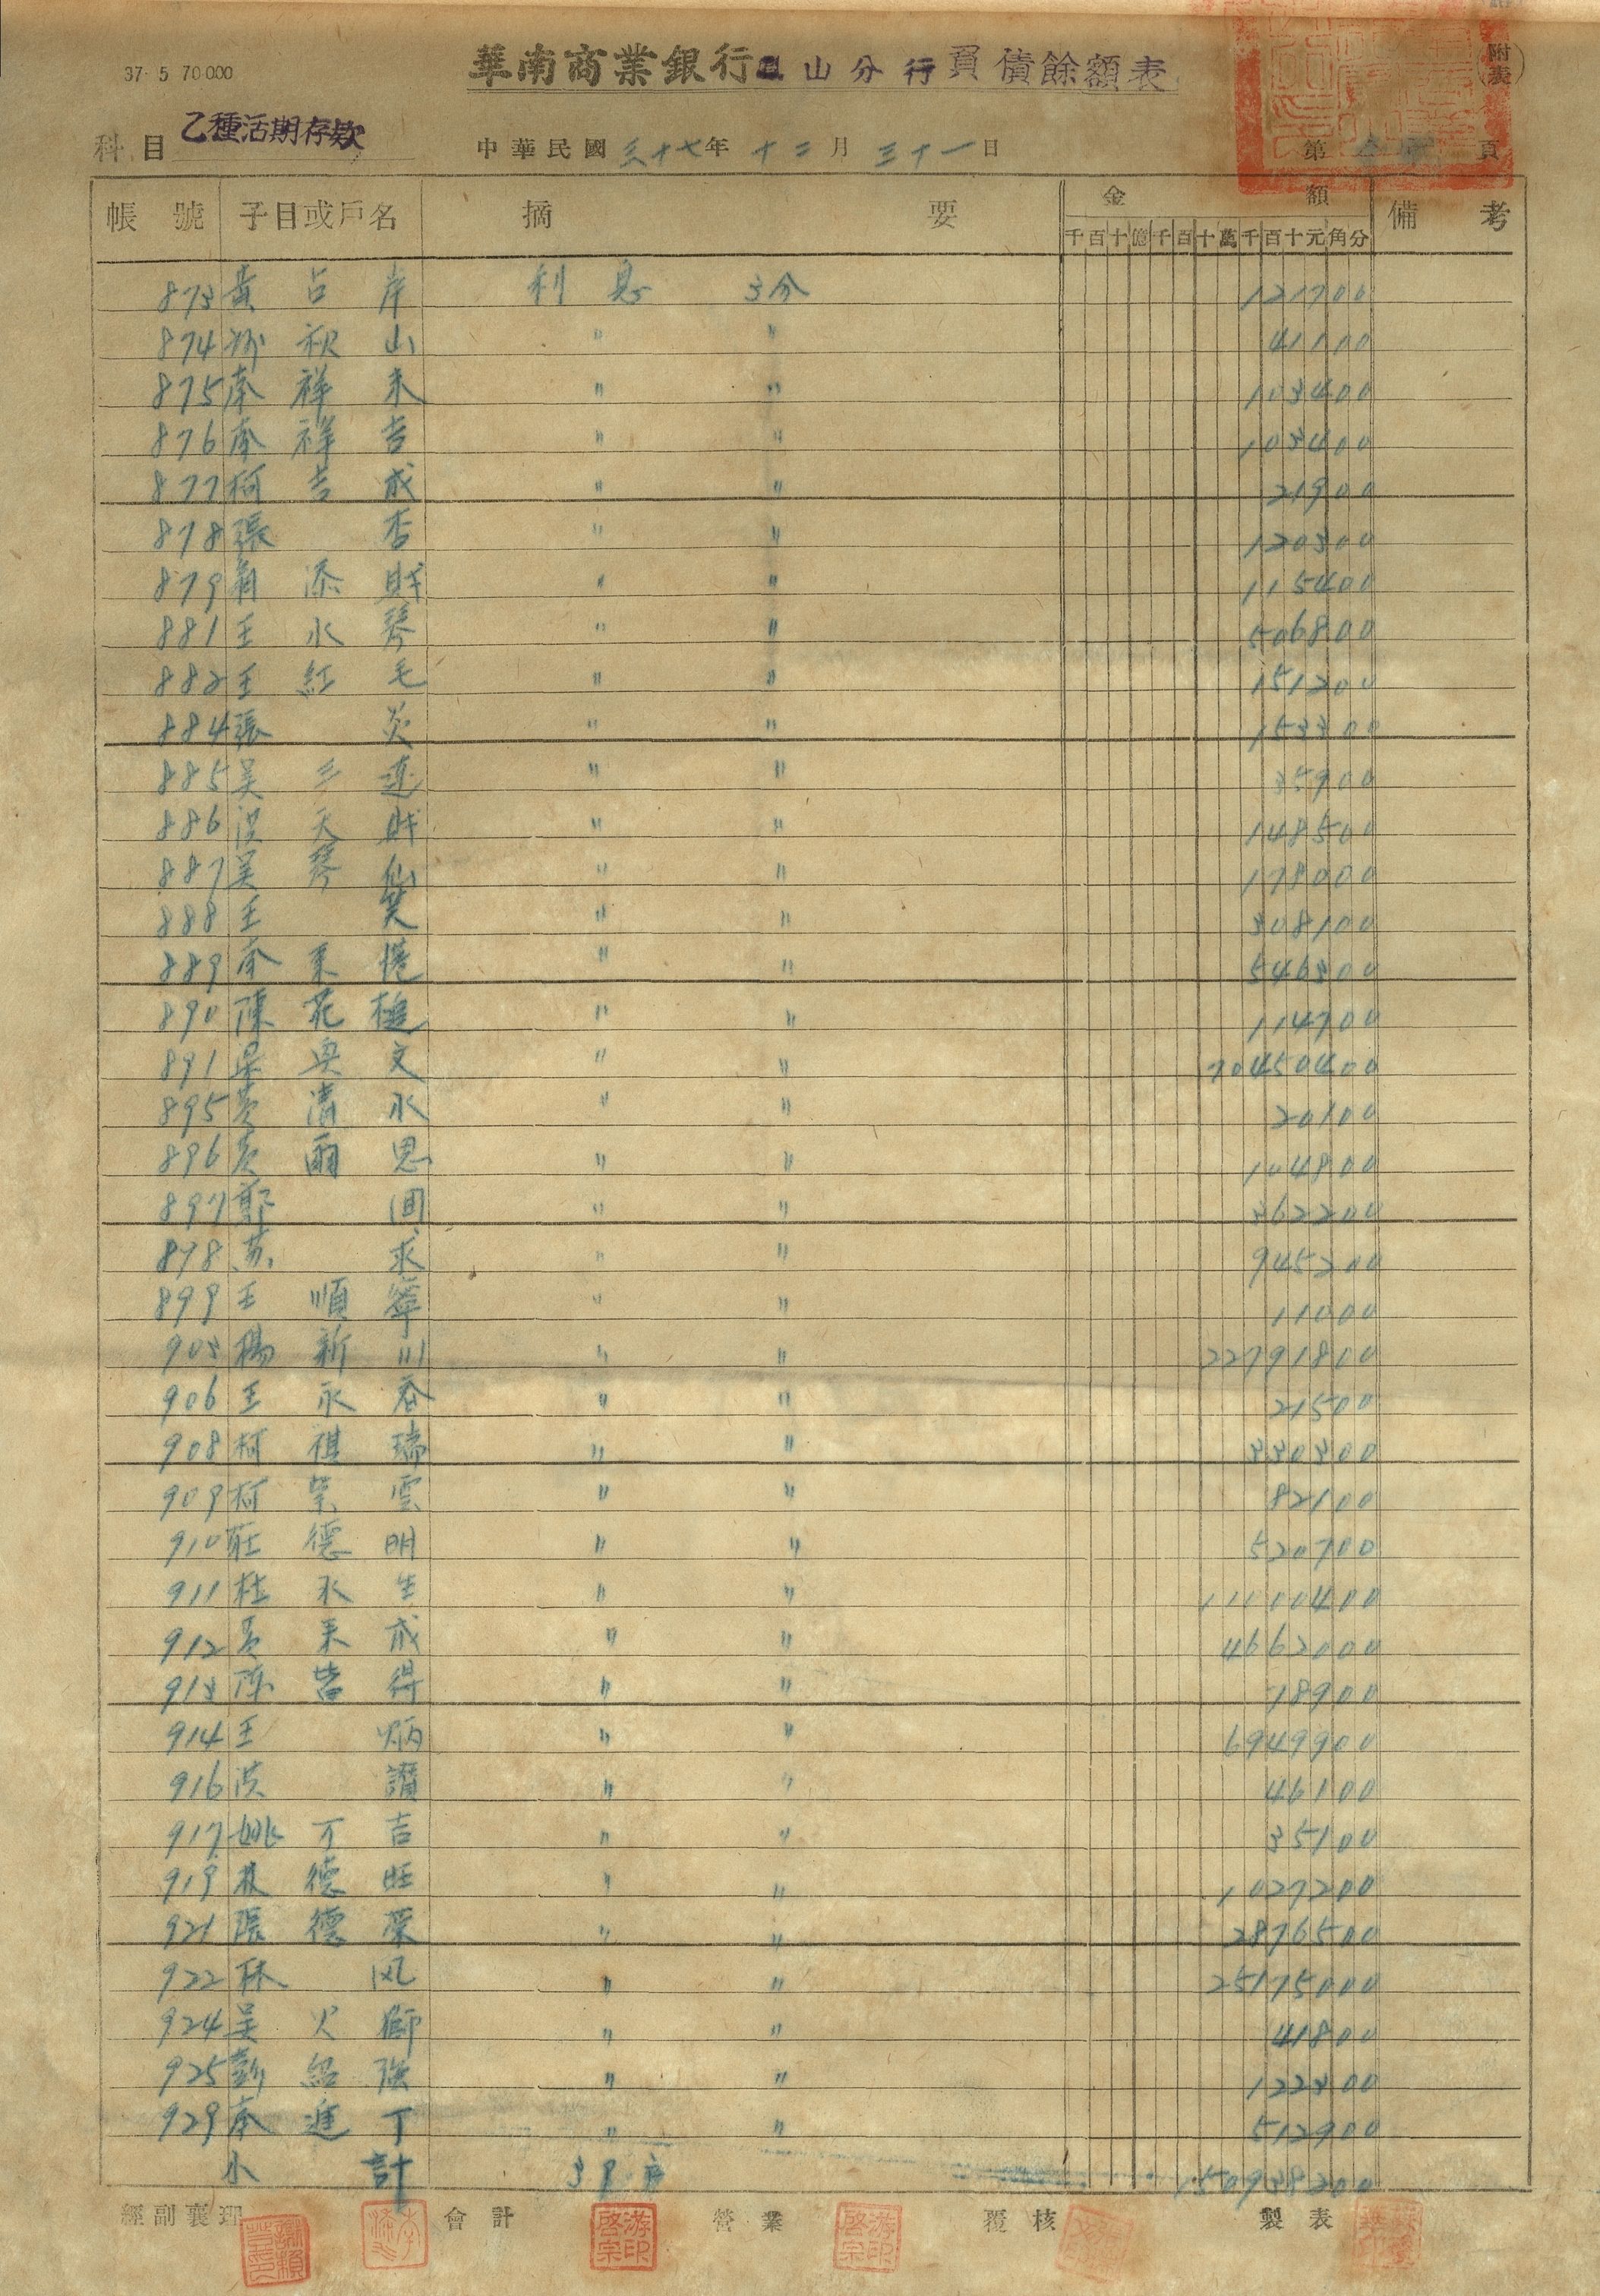 37 5 70.000
華南商業銀行鳳山分行負債餘額表
附表
科目 乙種活期存款 中華民國三十七年十二月三十一日 第 頁
帳號 子目或戶名 摘要 金額 備考
千百十億千百十萬千百十元角分
873 黃占岸 利息 3分 121700
874 秋山 〃 〃 41100
875 李祥未 〃 〃 103400
876 李祥吉 〃 〃 103400
877 柯吉成 〃 〃 21900
878 張杏 〃 〃 120300
879 添財 〃 〃 115400
881 王水琴 〃 〃 506800
882 王紅毛 〃 〃 151200
884 張炎 〃 〃 153300
885 吳三連 〃 〃 35900
886 洪天財 〃 〃 148500
887 吳琴仙 〃 〃 178000
888 王 〃 〃 308100
889 李來 〃 〃 546300
890 陳苑 〃 〃 114700
891 梁文 〃 〃 70450400
895 黃清水 〃 〃 20100
896 黃爾恩 〃 〃 104800
897 鄭 〃 〃 362200
898 蘇求 〃 〃 945200
899 王順 〃 〃 11000
903 楊新川 〃 〃 22791800
906 王永 〃 〃 21500
908 柯祺瑞 〃 〃 330300
909 柯榮雲 〃 〃 82100
910 莊德明 〃 〃 520700
911 杜永生 〃 〃 11100400
912 黃來成 〃 〃 4662000
913 陳皆得 〃 〃 18900
914 王炳 〃 〃 6949900
916 洪讚 〃 〃 46100
917 姚丁吉 〃 〃 35100
919 林德旺 〃 〃 1027200
921 張德榮 〃 〃 2876500
922 林风 〃 〃 25175000
924 吳火獅 〃 〃 41800
925 彭紹強 〃 〃 122300
929 李進丁 〃 〃 512900
小計 39戶 150938200
經副襄理 會計 營業 覆核 製表
游印啓宗 游印啓宗